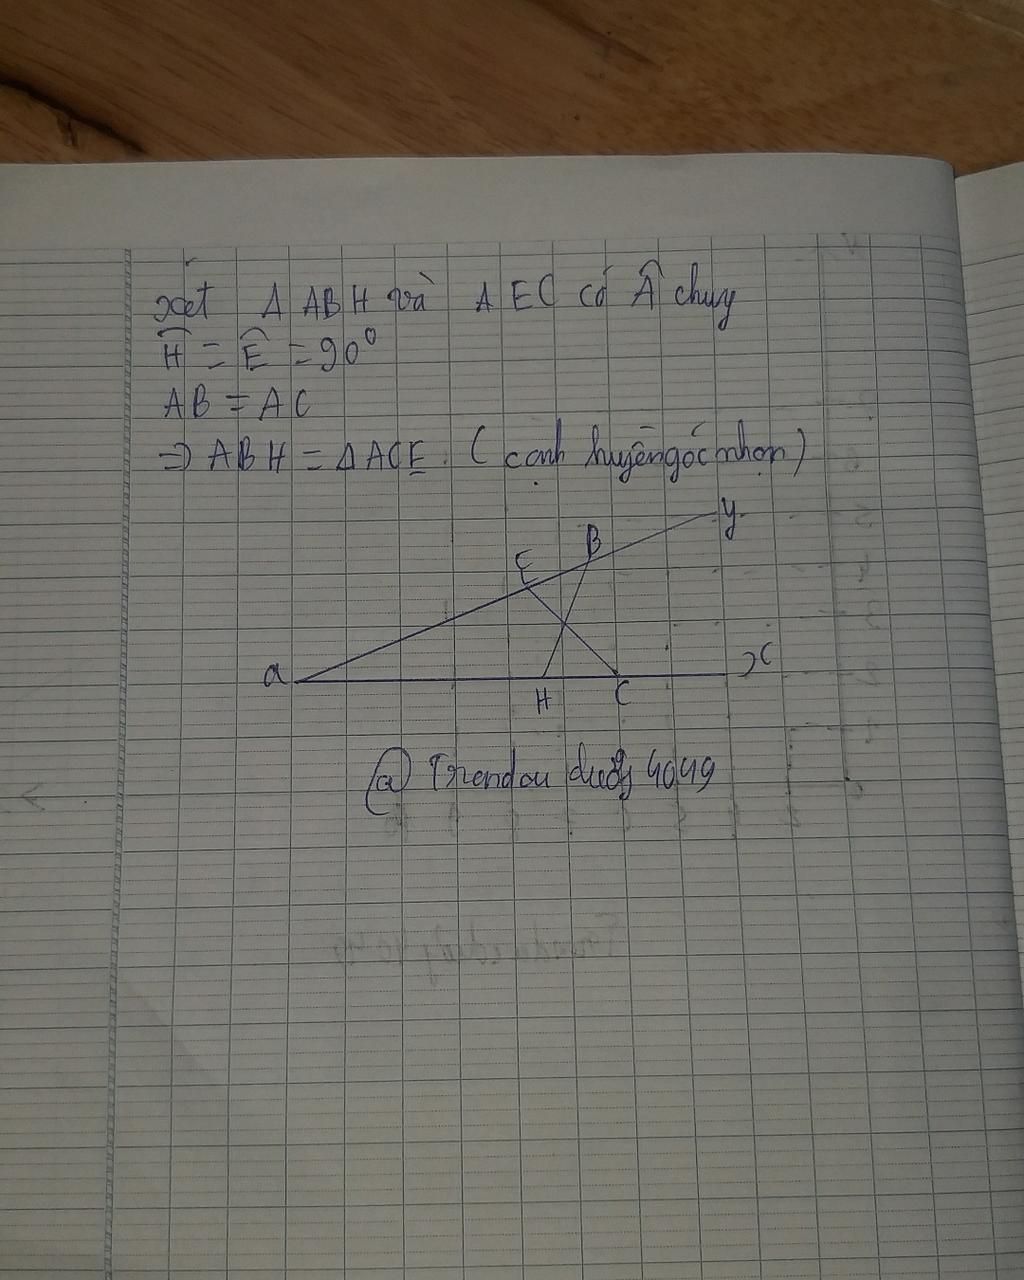 xét Δ ABH và AEC có Â chung
Ĥ = Ê = 90°
AB = AC
=> ABH = ΔACE. (cạnh huyền góc nhọn)
y
B
E
a
x
H
C
@ Trandau duy 4049